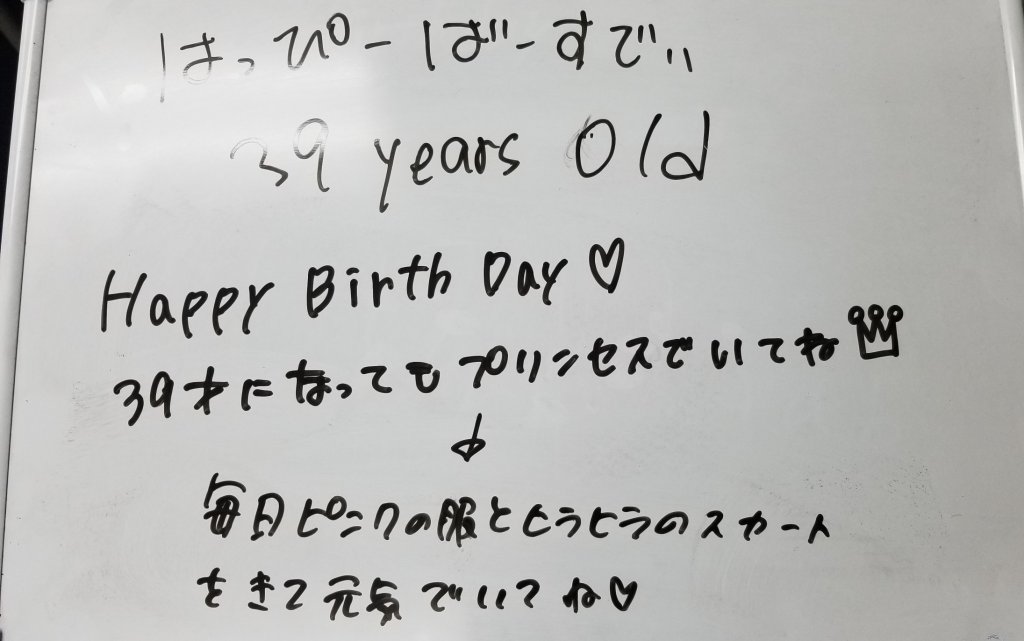 はっぴーばーすでぃ
39 years Old
Happy Birth Day ♡
39才になってもプリンセスでいてね
↓
毎日ピンクの服とヒラヒラのスカート
をきて元気でいてね♡